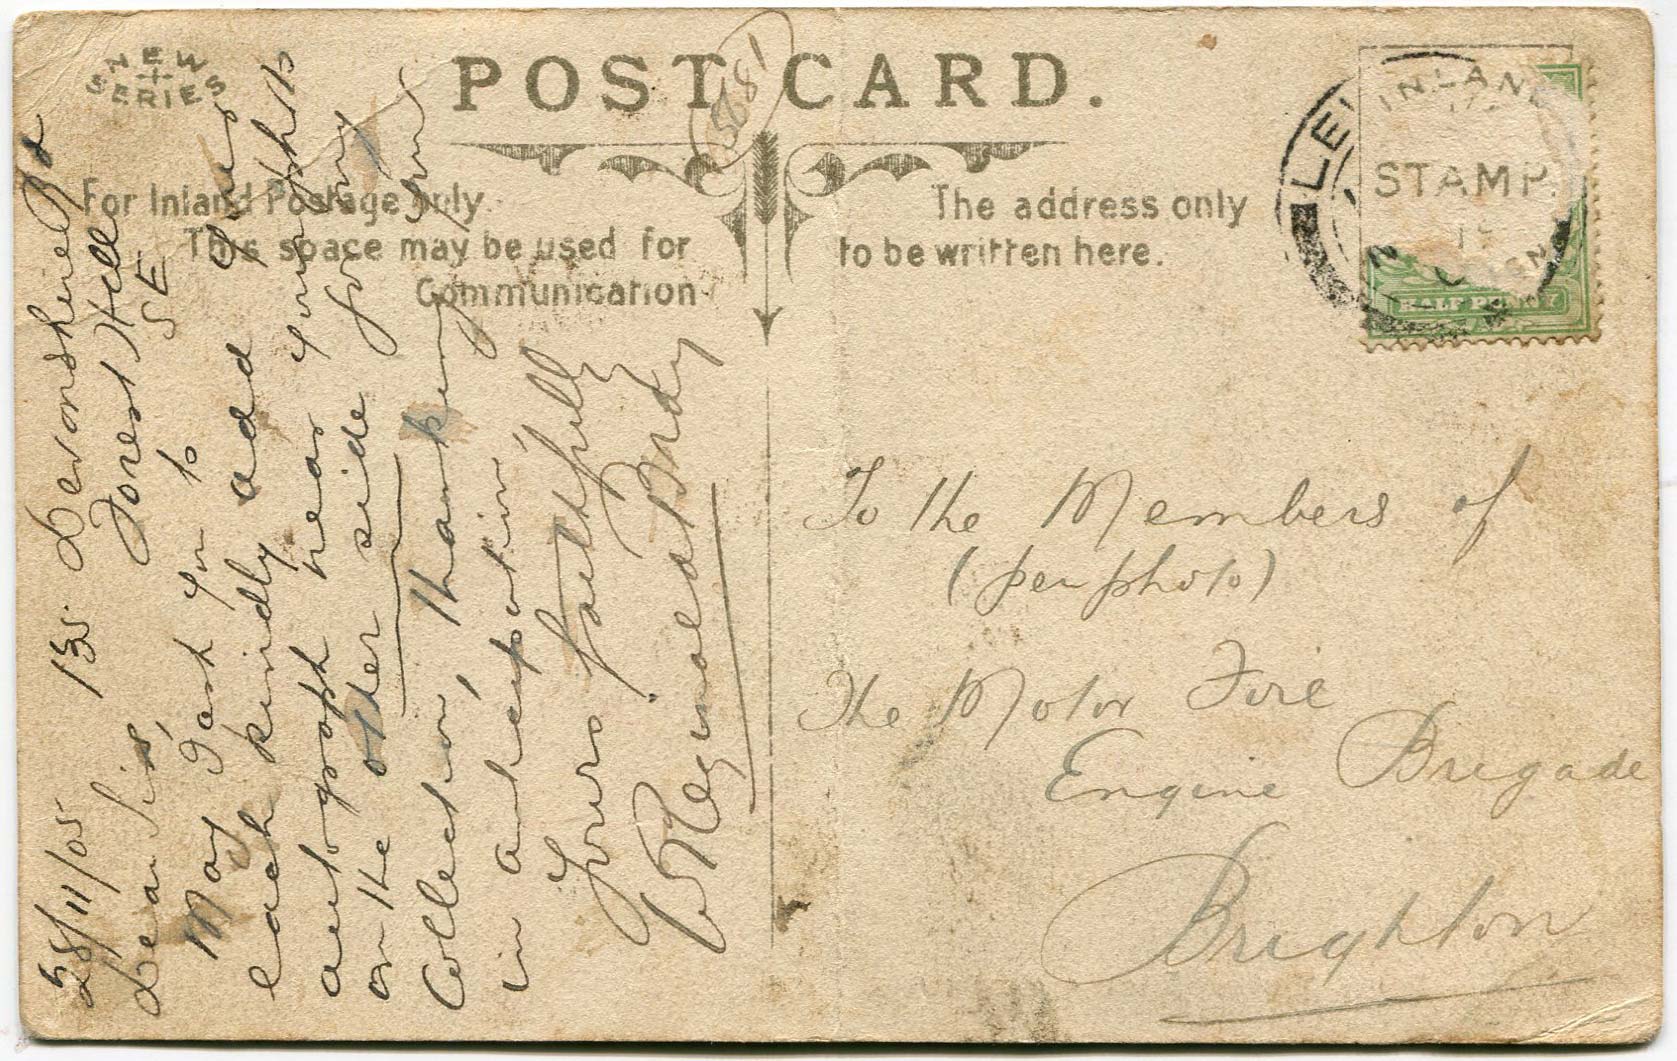 NEW
SERIES
POST CARD.
1881
For Inland Postage only
This space may be used for
Communication
The address only
to be written here.
INLAND
STAMP
HALF PENNY
28/11/05 135 Devonshire Rd
Forest Hill
S E
Dear Sir,
May I ask you to
each kindly add your
autograph near your photo
on the other side for my
Collection, thanking you
in anticipation,
Yours faithfully
W Reginald Bray
To the Members of
(pen photo)
The Motor Fire
Engine Brigade
Brighton